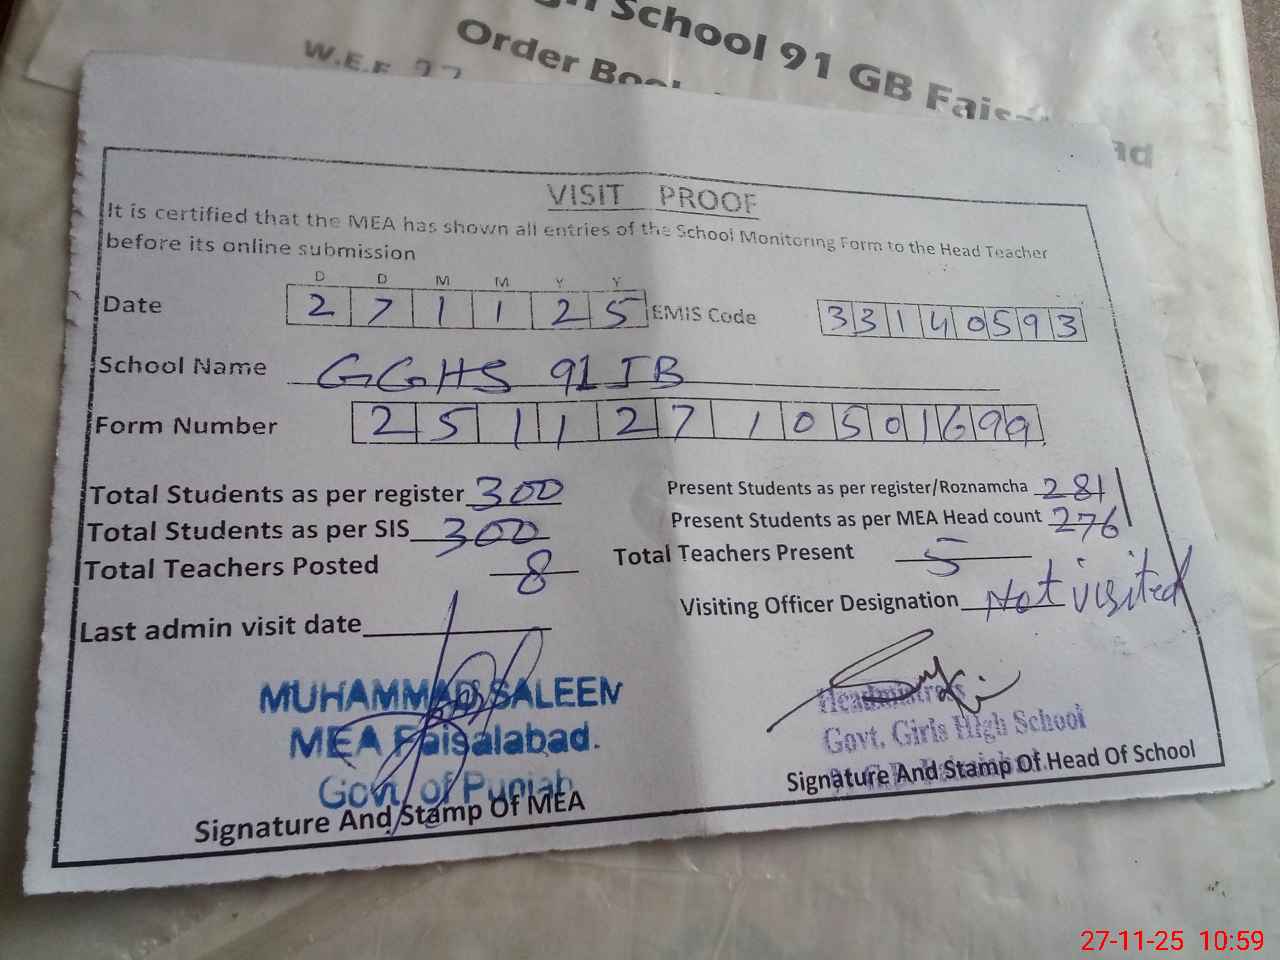 School 91 GB Fais
Order Book
W.E.F 27
VISIT PROOF
It is certified that the MEA has shown all entries of the School Monitoring Form to the Head Teacher
before its online submission
D D M M Y Y
Date 2 7 1 1 2 5 EMIS Code 3 3 1 4 0 5 9 3
School Name GGHS 91 JB
Form Number 2 5 1 1 2 7 1 0 5 0 1 6 9 9
Total Students as per register 300 Present Students as per register/Roznamcha 281
Total Students as per SIS 300 Present Students as per MEA Head count 276
Total Teachers Posted 8 Total Teachers Present 5
Last admin visit date Visiting Officer Designation Not visited
MUHAMMAD SALEEM
MEA Faisalabad.
Govt. of Punjab
Signature And Stamp Of MEA
Headmistress
Govt. Girls High School
Signature And Stamp Of Head Of School
27-11-25 10:59